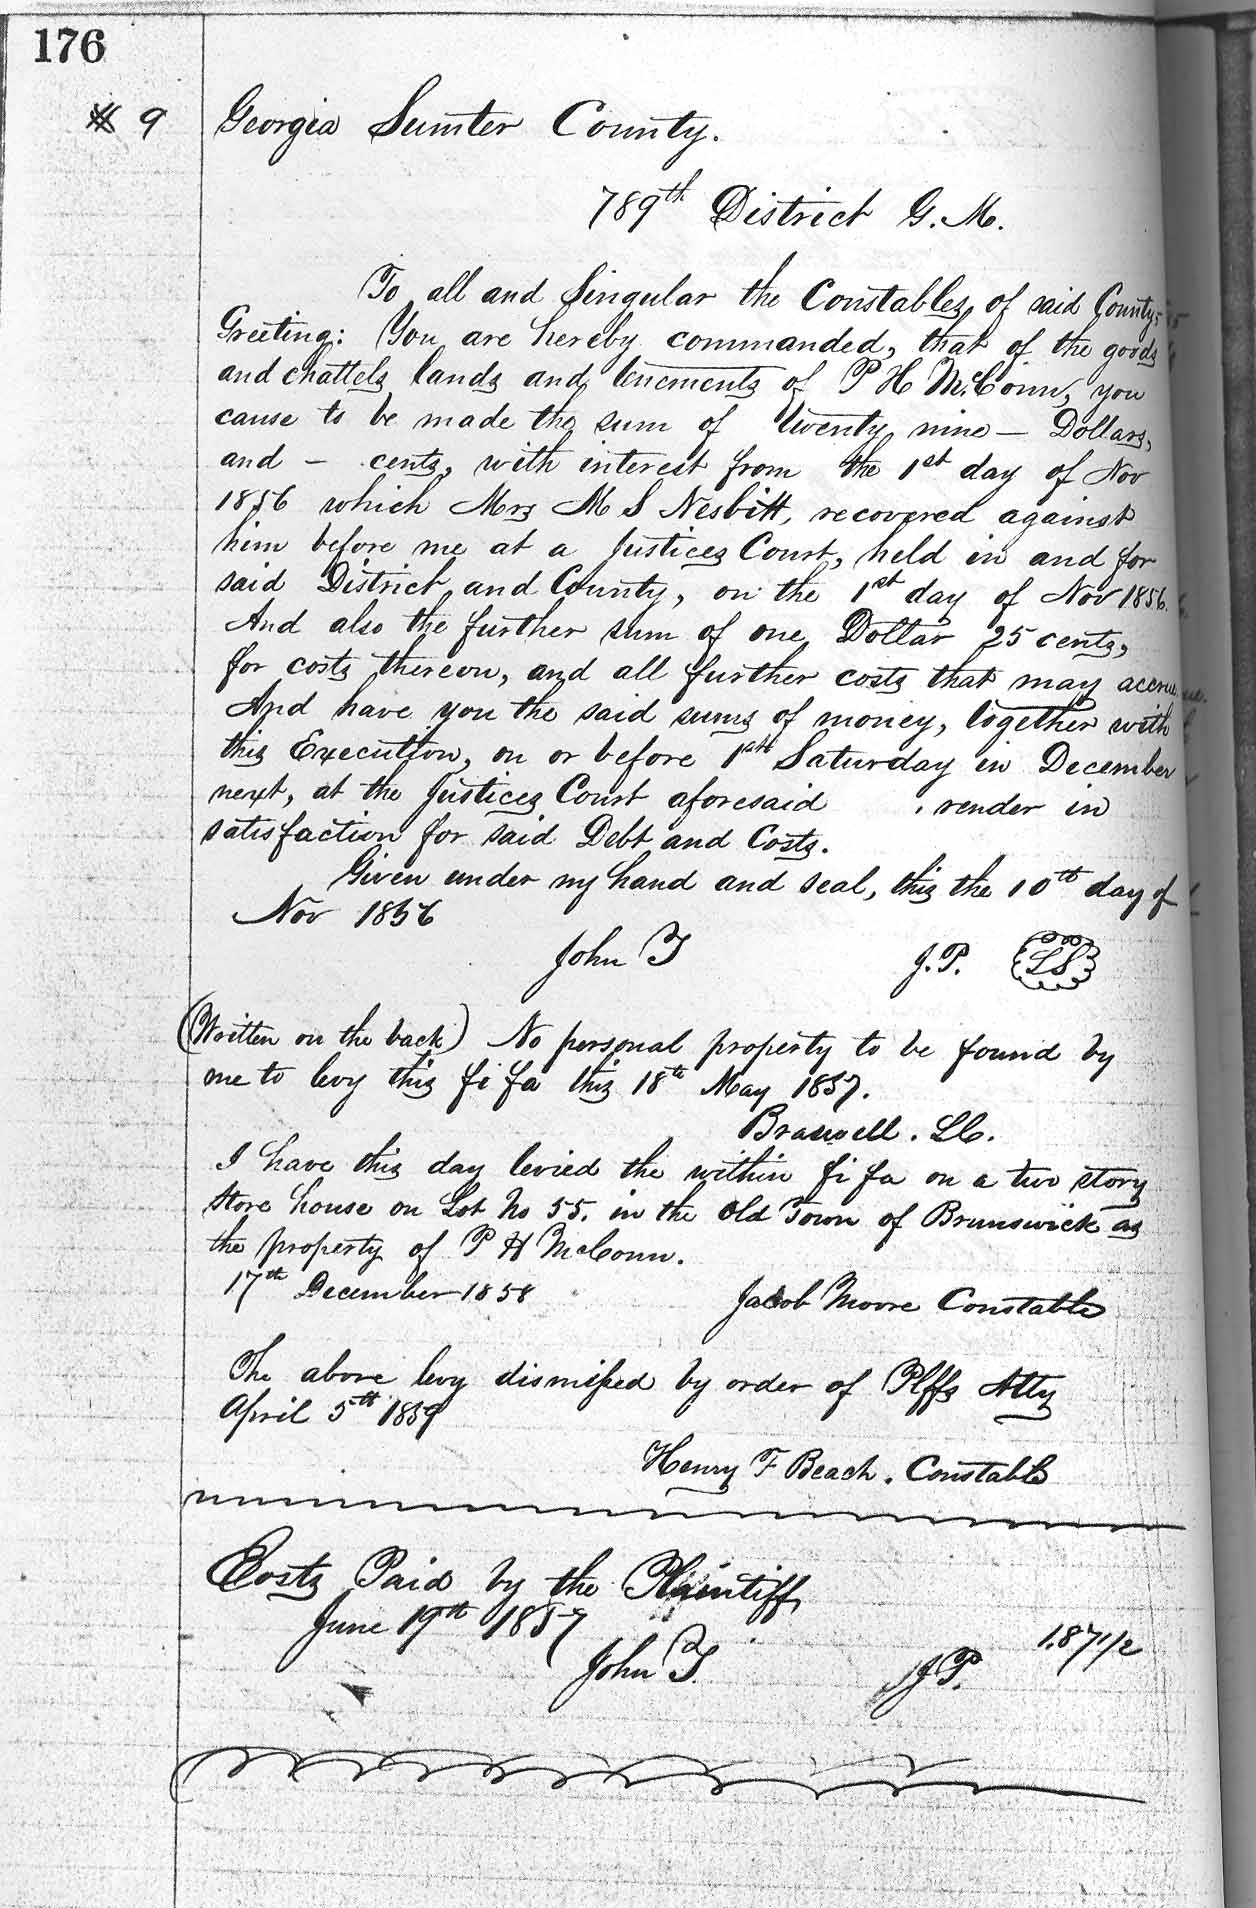 176
# 9
Georgia Sumter County.
789th District G. M.
To all and Singular the Constables, of said County,
Greeting: You are hereby commanded, that of the goods
and chattels lands and tenements of P H McConn, you
cause to be made the sum of twenty nine — Dollars,
and — cents, with interest from the 1st day of Nov
1856 which Mrs M S Nesbitt, recovered against
him before me at a Justices Court, held in and for
said District and County, on the 1st day of Nov 1856.
And also the further sum of one Dollar 25 cents,
for costs thereon, and all further costs that may accrue.
And have you the said sums of money, together with
this Execution, on or before 1st Saturday in December
next, at the Justices Court aforesaid , render in
satisfaction for said Debt and Costs.
Given under my hand and seal, this the 10th day of
Nov 1856
John T J.P. LS
(Written on the back) No personal property to be found by
me to levy this fi fa this 18th May 1857.
Braswell. LC.
I have this day levied the within fi fa on a two story
Store house on Lot No 55. in the Old Town of Brunswick as
the property of P H McConn.
17th December 1858 Jacob Moore Constable
The above levy dismissed by order of Plffs Atty
April 5th 1859
Henry F Beach. Constable
Costs Paid by the Plaintiff,
June 19th 1857 1.87 1/2
John T. J P.